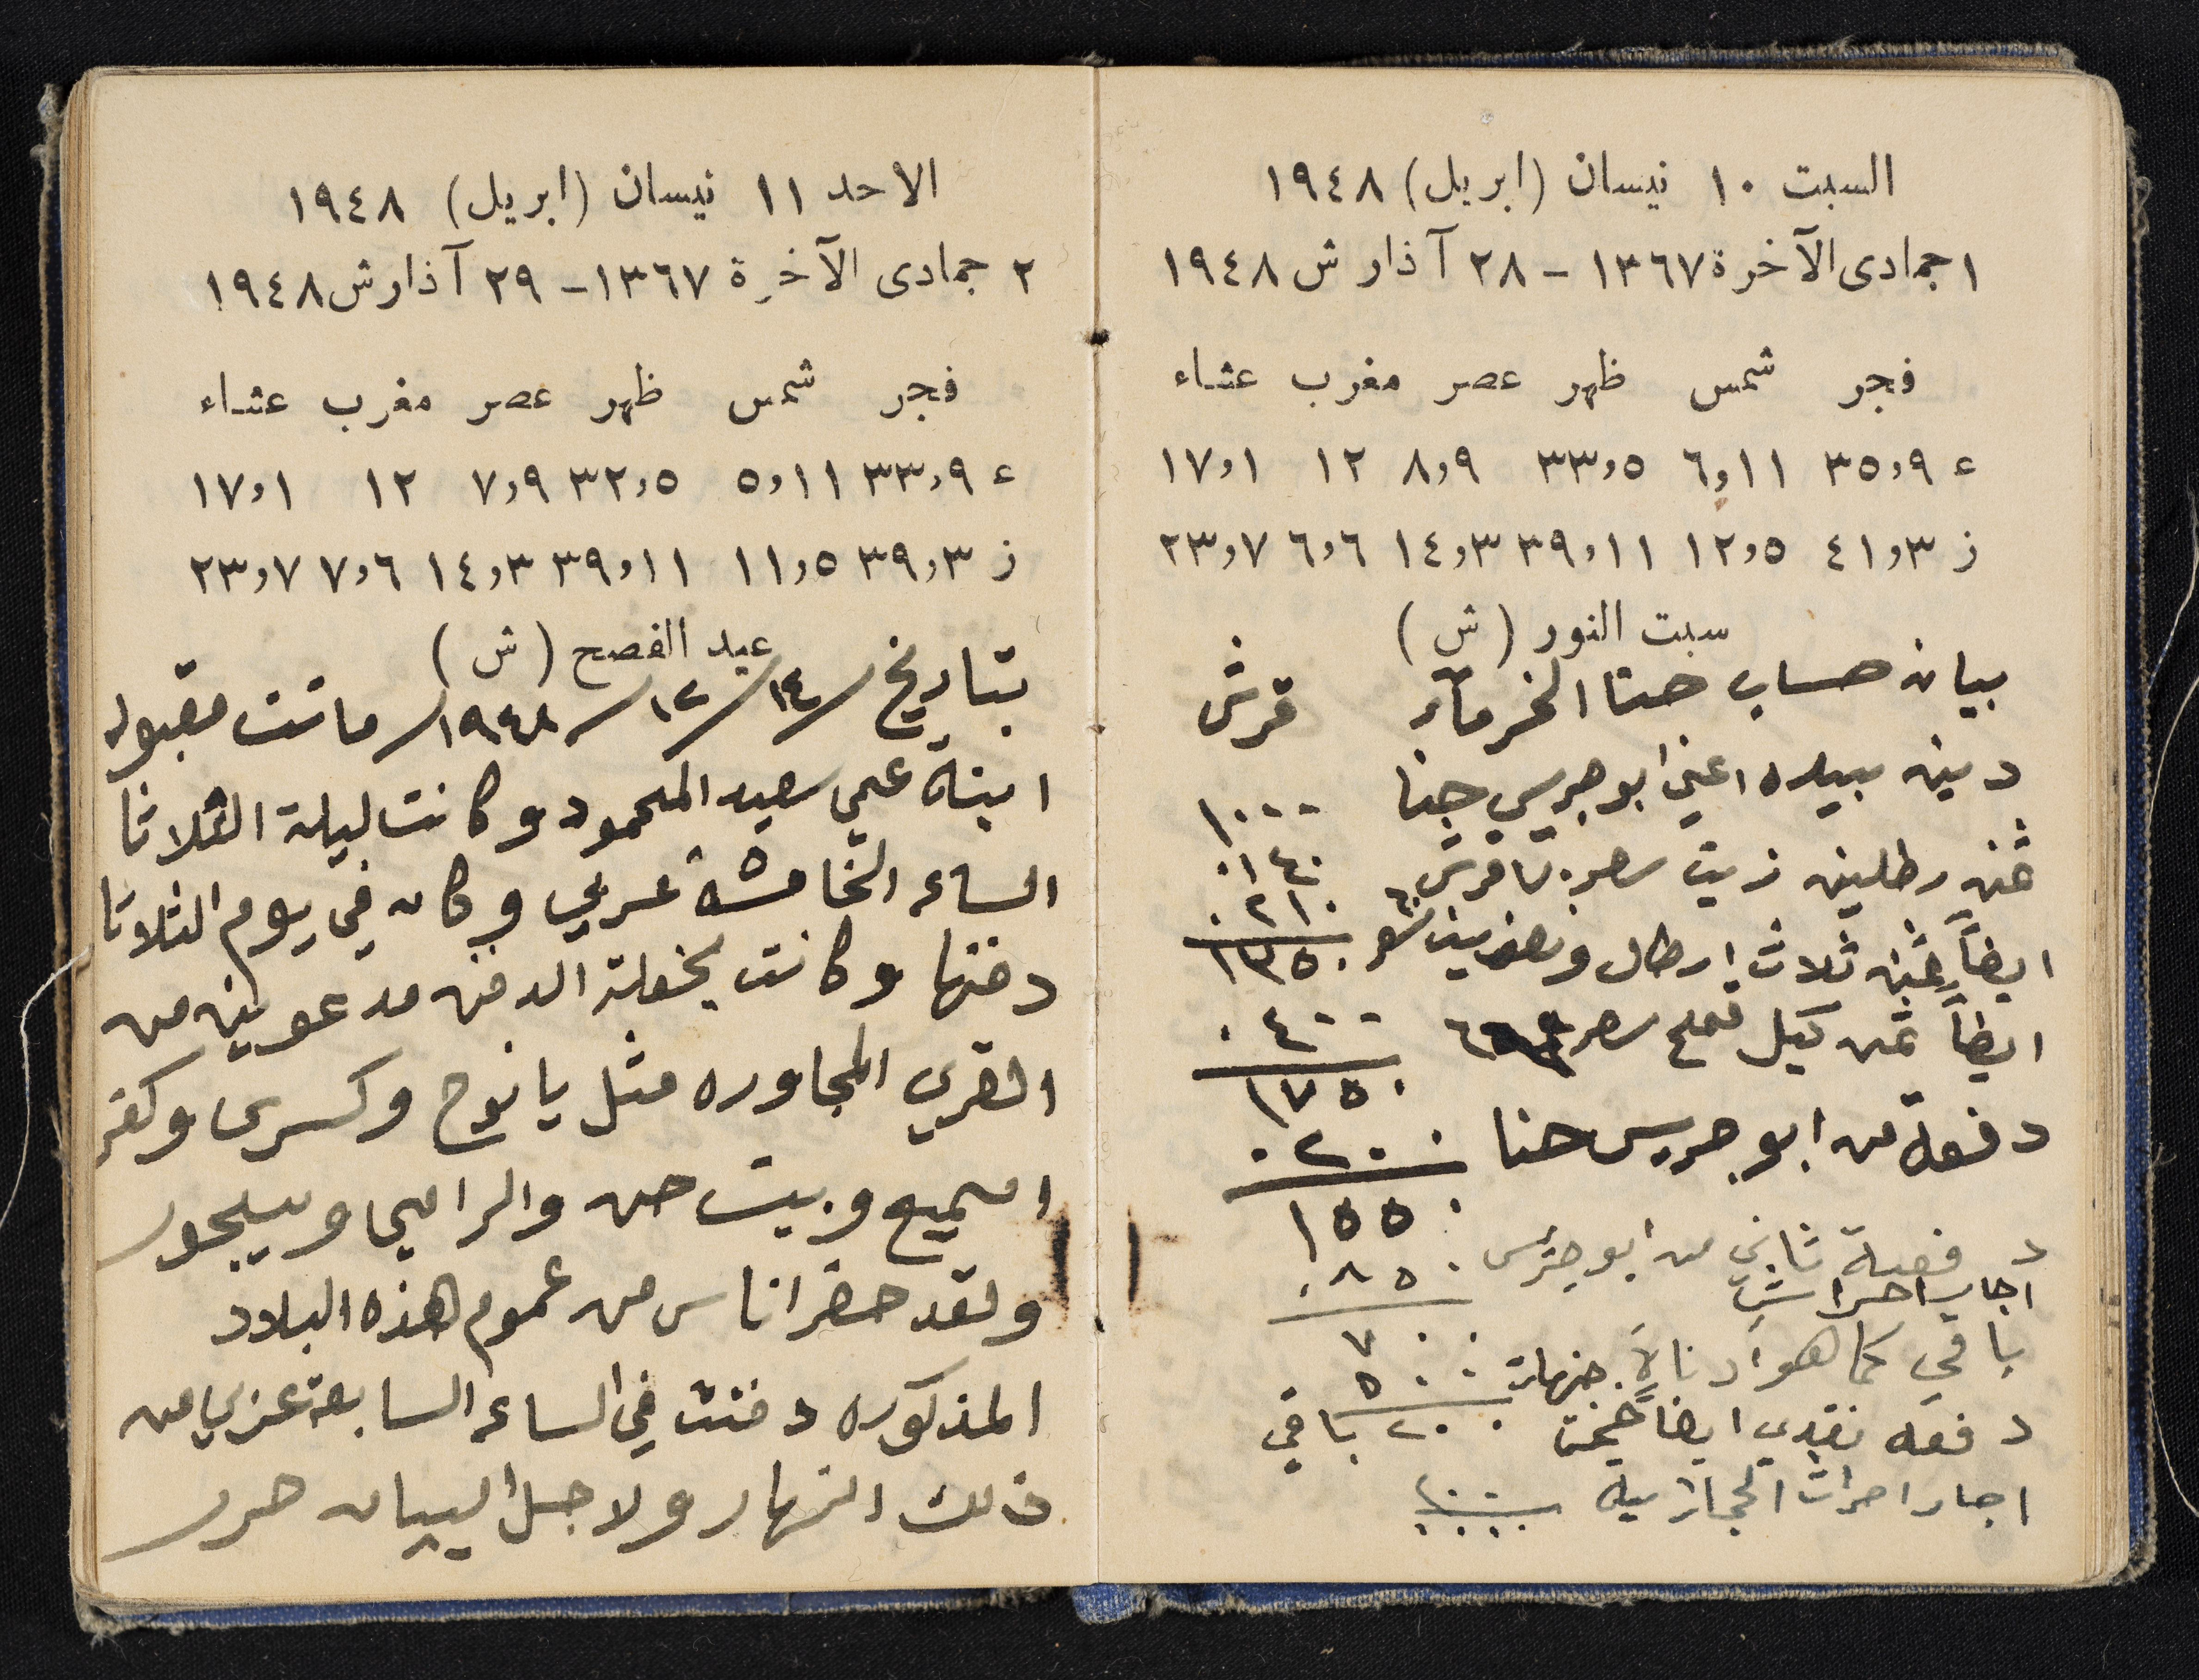 السبت ١٠ نيسان (ابريل) ١٩٤٨
١ جمادى الآخرة ١٣٦٧ - ٢٨ آذار ش ١٩٤٨
فجر شمس ظهر عصر مغرب عشاء
ع ٣٥,٩ ٦,١١ ٣٣,٥ ٨,٩ ١٢ ١٧,١
ز ٤١,٣ ١٢,٥ ٣٩,١١ ١٤,٣ ٦,٦ ٢٣,٧
سبت النور (ش)
بيان حساب حنا قرش
دينه بيده اعني ابو جريس حنا ١٠٠٠
ثمن رطلين زيت سعر ٧٠ قرش ٠١٤٠
ايضاً ثمن ثلاث ارطال ونصف سعر ٦٠ ٠٢١٠
١٣٥٠
ايضاً ثمن كيل قمح سعر ٠٤٠٠
١٧٥٠
دفعة من ابو جريس حنا ٠٢٠٠
١٥٥٠
دفعة ثاني من ابو جريس ٠٨٥٠
اجار احراث
باقي كما هو ادناه ٧٠٠
دفعه نقدي ايضاً ٥٠٠
٢٠٠ باقي
اجار احراث
الاحد ١١ نيسان (ابريل) ١٩٤٨
٢ جمادى الآخرة ١٣٦٧ - ٢٩ آذار ش ١٩٤٨
فجر شمس ظهر عصر مغرب عشاء
ع ٣٣,٩ ٥,١١ ٣٢,٥ ٧,٩ ١٢ ١٧,١
ز ٣٩,٣ ١١,٥ ٣٩,١١ ١٤,٣ ٧,٦ ٢٣,٧
عيد الفصح (ش)
بتاريخ ١٤/١٢/١٩٤٨ ماتت مقبوله
ابنة عمي سعيد المحمود وكانت ليلة الثلاثا
الساعه الخامسة عربي وكان في يوم الثلاثا
دفنها وكانت بحفلة الدفن مدعوين من
القرى المجاوره مثل يانوح وكسرى وكفر
اسميع وبيت جن والرامي وسيجور
ولقد حضر اناس من عموم هذه البلاد
المذكوره دفنت في الساعه السابعة عربي من
ذلك النهار ولاجل البيان حرر